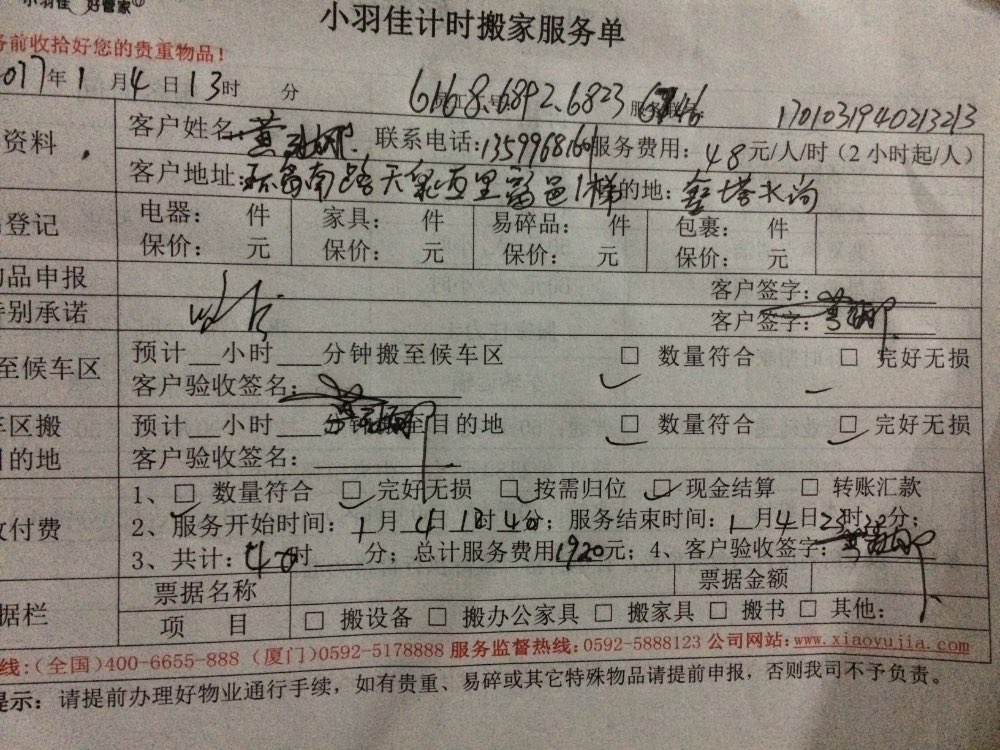 小羽佳 好管家
小羽佳计时搬家服务单
务前收拾好您的贵重物品！
2017年1月4日13时 分 6168.6892.6823 6746 170103194021321​3
资料 客户姓名:黄 联系电话:13599681661服务费用：48元/人/时（2小时起/人）
客户地址: 南路天泉西里 的地:
登记 电器： 件 家具： 件 易碎品： 件 包裹： 件
保价： 元 保价： 元 保价： 元 保价： 元
物品申报 客户签字:
特别承诺 客户签字:
至候车区 预计__小时___分钟搬至候车区 □ 数量符合 □ 完好无损
客户验收签名:
车区搬 预计__小时___分钟搬至目的地 □ 数量符合 □ 完好无损
目的地 客户验收签名:
1、□ 数量符合 □ 完好无损 □ 按需归位 □ 现金结算 □ 转账汇款
收付费 2、服务开始时间：1月4日 时 分；服务结束时间：1月4日23时 分；
3、共计：40时___分；总计服务费用1920元；4、客户验收签字:
据栏 票据名称 票据金额
项 目 □ 搬设备 □ 搬办公家具 □ 搬家具 □ 搬书 □ 其他:
线:(全国)400-6655-888 (厦门)0592-5178888 服务监督热线:0592-5888123 公司网站:www.xiaoyujia.com
提示：请提前办理好物业通行手续，如有贵重、易碎或其它特殊物品请提前申报，否则我司不予负责。